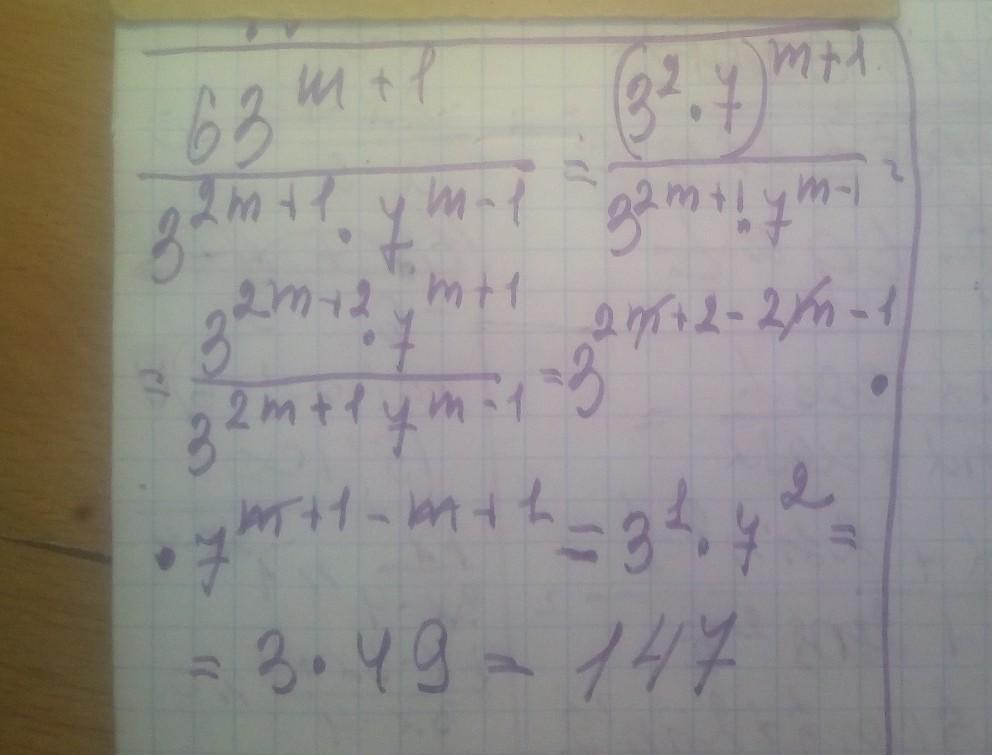 63^{m+1} / (3^{2m+1} · 7^{m-1}) = (3^2 · 7)^{m+1} / (3^{2m+1} · 7^{m-1}) =
= (3^{2m+2} · 7^{m+1}) / (3^{2m+1} 7^{m-1}) = 3^{2m+2-2m-1} ·
· 7^{m+1-m+1} = 3^1 · 7^2 =
= 3 · 49 = 147